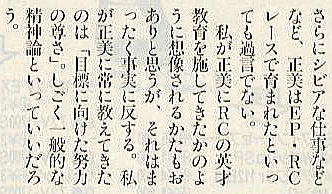 さらにシビアな仕事など
など、正美はEP・RC
レースで育まれたといっ
ても過言でない。
私が正美にRCの英才
教育を施してきたかのよ
うに想像されるかたもお
ありと思うが、それはま
ったく事実に反する。私
が正美に常に教えてきた
のは「目標に向けた努力
の尊さ」。しごく一般的な
精神論といっていいだろ
う。